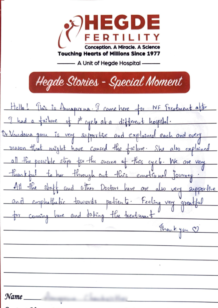 HEGDE
FERTILITY
Conception. A Miracle. A Science
Touching Hearts of Millions Since 1977
A Unit of Hegde Hospital
Hegde Stories - Special Moment
Hello! This is Anupama. I came here for IVF Treatment after
I had a failure of 1st cycle at a different hospital.
Dr. Vandana garu is very supportive and explained each and every
reason that might have caused the failure. She also explained
all the possible steps for the success of this cycle. We are very
thankful to her through out this emotional journey.
All the staff and other Doctors here are also very supportive
and emphathetic towards patients. Feeling very grateful
for coming here and taking the treatment.
Thank you
Name